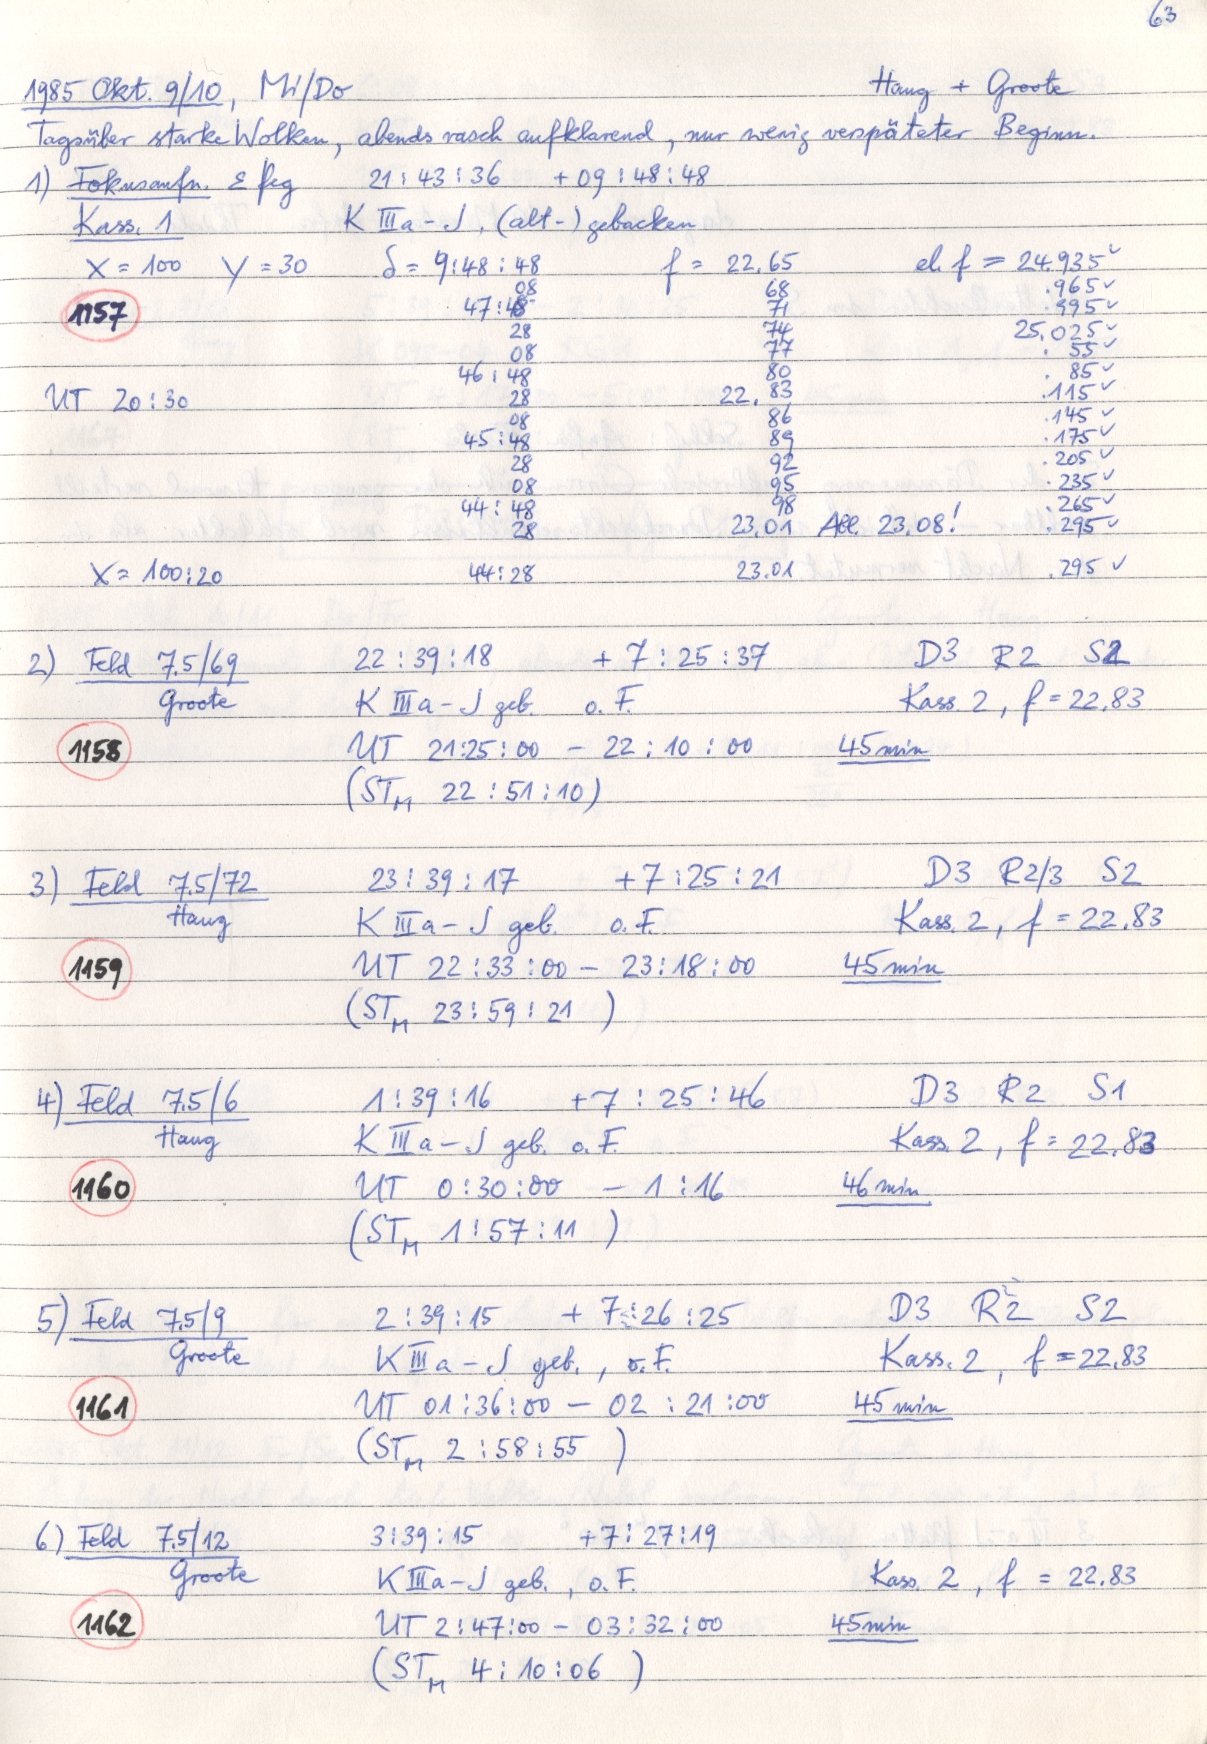 63
1985 Okt. 9/10, Mi/Do Haug + Groote
Tagsüber starke Wolken, abends rasch aufklarend, nur wenig verspäteter Beginn.
1) Fokusaufn. ε Peg 21:43:36 +09:48:48
Kass. 1 K IIIa-J, (alt-) gebacken
X = 100 Y = 30 δ = 9:48:48 f = 22.65 el. f = 24.935 ✓
08 68 .965 ✓
1157 47:48 71 .995 ✓
28 74 25.025 ✓
08 77 . 55 ✓
46:48 80 . 85 ✓
UT 20:30 28 22.83 .115 ✓
08 86 .145 ✓
45:48 89 .175 ✓
28 92 .205 ✓
08 95 .235 ✓
44:48 98 265 ✓
28 23.01 Abl. 23.08! .295 ✓
X = 100:20 44:28 23.01 .295 ✓
2) Feld 7.5/69 22:39:18 +7:25:37 D3 R2 S2
Groote K IIIa-J geb. o.F. Kass. 2, f = 22.83
1158 UT 21:25:00 – 22:10:00 45min
(ST_M 22:51:10)
3) Feld 7.5/72 23:39:17 +7:25:21 D3 R2/3 S2
Haug K IIIa-J geb. o.F. Kass. 2, f = 22.83
1159 UT 22:33:00 – 23:18:00 45min
(ST_M 23:59:21)
4) Feld 7.5/6 1:39:16 +7:25:46 D3 R2 S1
Haug K IIIa-J geb. o.F. Kass. 2, f = 22.83
1160 UT 0:30:00 – 1:16 46min
(ST_M 1:57:11)
5) Feld 7.5/9 2:39:15 +7:26:25 D3 R2 S2
Groote K IIIa-J geb., o.F. Kass. 2, f = 22.83
1161 UT 01:36:00 – 02:21:00 45min
(ST_M 2:58:55)
6) Feld 7.5/12 3:39:15 +7:27:19
Groote K IIIa-J geb., o.F. Kass. 2, f = 22.83
1162 UT 2:47:00 – 03:32:00 45min
(ST_M 4:10:06)